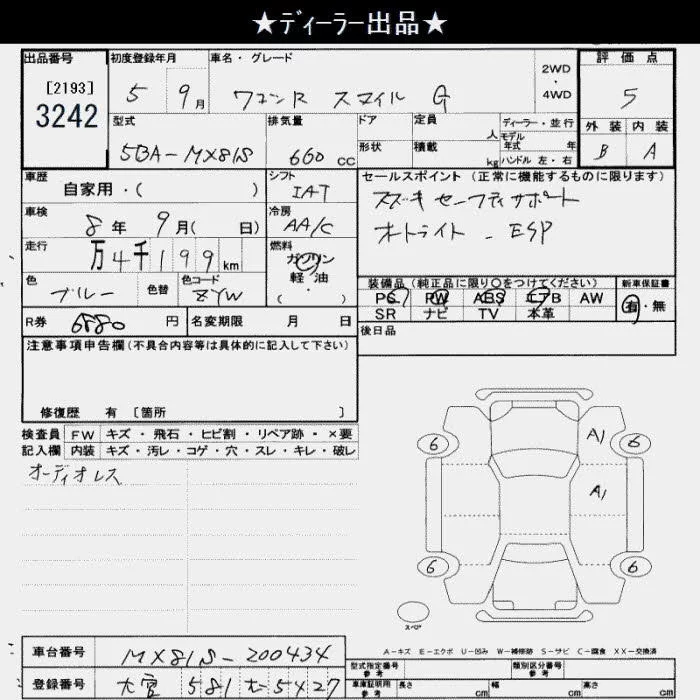 ★ディーラー出品★
出品番号 初度登録年月 車名・グレード 評価点
[2193]
3242
5 9月 ワゴンR スマイル G 2WD・4WD 5
型式 排気量 ドア 定員 人 ディーラー・並行 外装 内装
5BA-MX81S 660 CC 形状 積載 kg モデル年式 年 ハンドル 左・右 B A
車歴 シフト セールスポイント (正常に機能するものに限ります)
自家用・( ) IAT
スズキ セーフティサポート
車検 冷房
8年 9月( 日) AA/C
オートライト - ESP
走行 燃料
万4千199km ガソリン
軽・油
( )
色 色替 色コード
ブルー ZYW
装備品 (純正品に限り○をつけてください) 新車保証書
PS PW ABS エアB AW
SR ナビ TV 本革
有・無
R券 6880円 名変期限 月 日
後日品
注意事項申告欄 (不具合内容等は具体的に記入して下さい)
修復歴 有 [箇所 ]
検査員 FW キズ・飛石・ヒビ割・リペア跡・×要
記入欄 内装 キズ・汚レ・コゲ・穴・スレ・キレ・破レ
オーディオレス
A1
6 6
A1
6 6
スペア
A-キズ E-エクボ U-凹み W-補修跡 S-サビ C-腐食 XX-交換済
車台番号 MX81S-200434
型式指定番号 参考 類別区分番号 参考
登録番号 581 5427
車庫証明用 参考 長さ cm 幅 cm 高さ cm